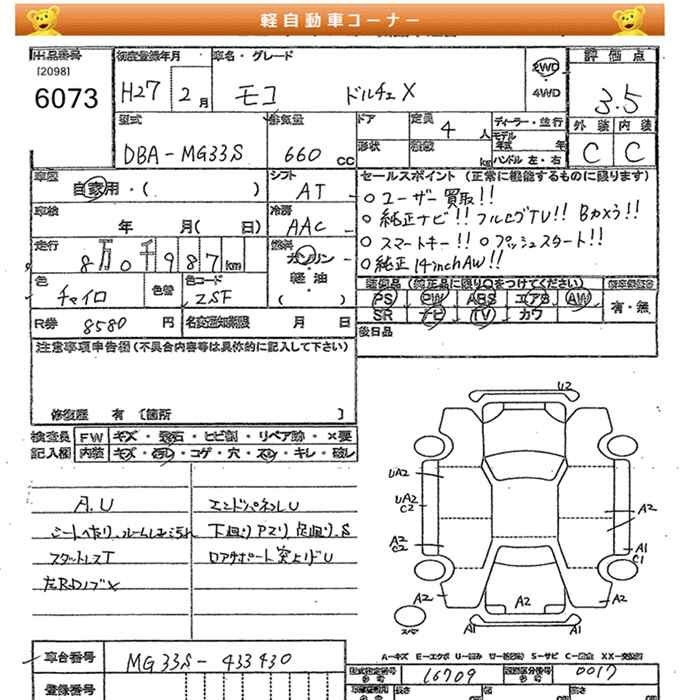 軽自動車コーナー
出品番号 初度登録年月 車名・グレード 評価点
[2098]
6073 H27 2月 モコ ドルチェX 2WD 4WD 3.5
型式 排気量 ドア 定員 4人 ディーラー・並行 外装 内装
モデル年式 年
DBA-MG33S 660cc 形状 積載 kg ハンドル 左・右 C C
車歴 シフト セールスポイント (正常に機能するものに限ります)
自家用・( ) AT ○ユーザー買取!!
車検 冷房 ○純正ナビ!! フルセグTV!! Bカメラ!!
年 月( 日) AAC ○スマートキー!! ○プッシュスタート!!
走行 燃料 ○純正14inchAW!!
8万0千987km ガソリン
軽・油
( )
色 色替 色コード 装備品 (純正品に限り○をつけてください)
チャイロ ZSF PS PW ABS エアB AW 有・無
SR ナビ TV カワ
R券 8580円 名変通知期限 月 日 後日品
注意事項申告欄 (不具合内容等は具体的に記入して下さい)
修復歴 有 [箇所 ]
検査員 FW キズ・飛石・ヒビ割・リペア跡・×要
記入欄 内装 キズ・汚レ・コゲ・穴・スレ・キレ・破レ
A.U エンドパネルU
シートヘタリ、ルームしみ汚れ 下廻りPスリ 足廻り、S
スタットレスT ロアサポート突上げU
左RDノブX
U2
UA2
UA2
C2
A2
C2
A2
A2
A1
C1
A2
A2
A2
スペア
A1
A1
A-キズ E-エクボ U-凹み S-サビ C-腐蝕 XX-交換済
車台番号 MG33S-433430 型式指定番号 16709 類別区分番号 0017
登録番号